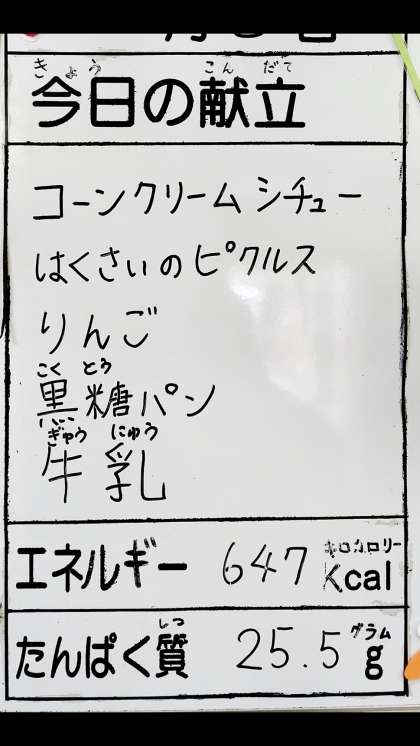 きょう こんだて
今日の献立
コーンクリームシチュー
はくさいのピクルス
りんご
こくとう
黒糖パン
ぎゅうにゅう
牛乳
キロカロリー
エネルギー 647 Kcal
しつ グラム
たんぱく質 25.5 g